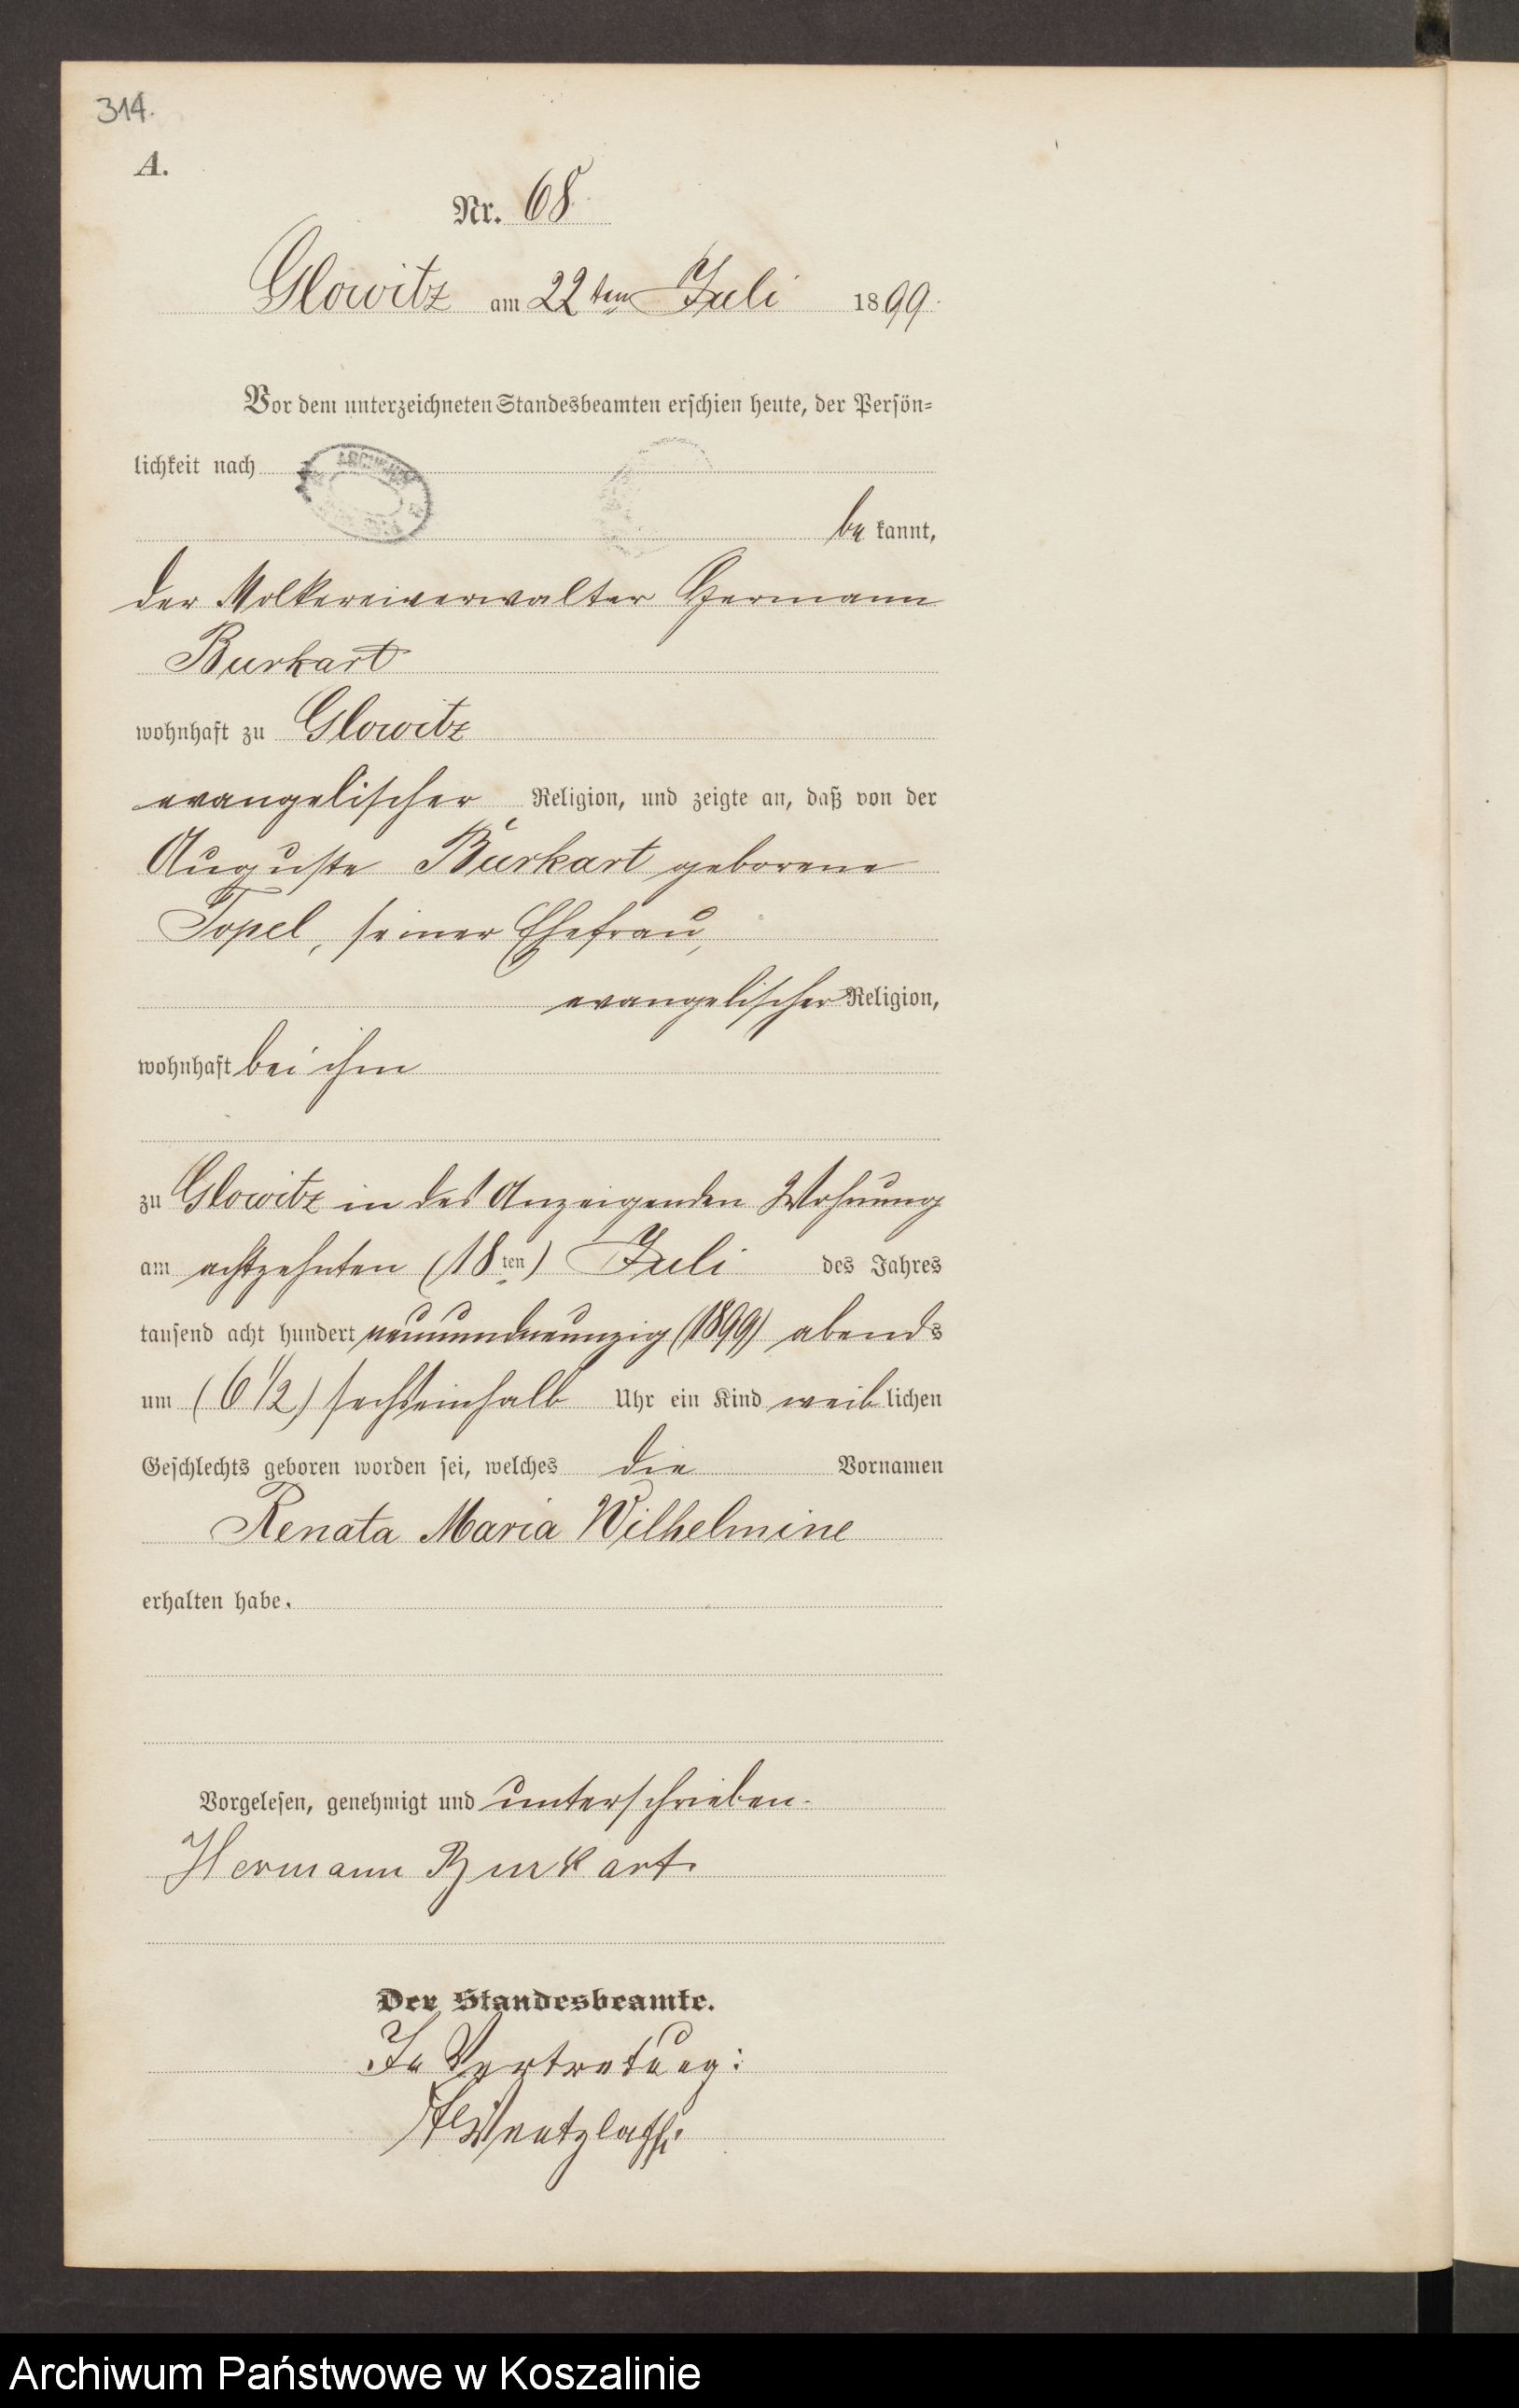 314.
A.
Nr. 68.
Glowitz am 22ten Juli 1899.
Vor dem unterzeichneten Standesbeamten erschien heute, der Persön=
lichkeit nach
be kannt,
der Molkereiverwalter Hermann
Burkart
wohnhaft zu Glowitz
evangelischer Religion, und zeigte an, daß von der
Auguste Burkart geborene
Topel, seiner Ehefrau,
evangelischer Religion,
wohnhaft bei ihm
zu Glowitz in des Anzeigenden Wohnung
am achtzehnten (18ten) Juli des Jahres
tausend acht hundert neunundneunzig (1899) abends
um (6 1/2) sechseinhalb Uhr ein Kind weib lichen
Geschlechts geboren worden sei, welches die Vornamen
Renata Maria Wilhelmine
erhalten habe.
Vorgelesen, genehmigt und unterschrieben.
Hermann Burkart.
Der Standesbeamte.
In Vertretung:
Wentzlaff.
Archiwum Państwowe w Koszalinie